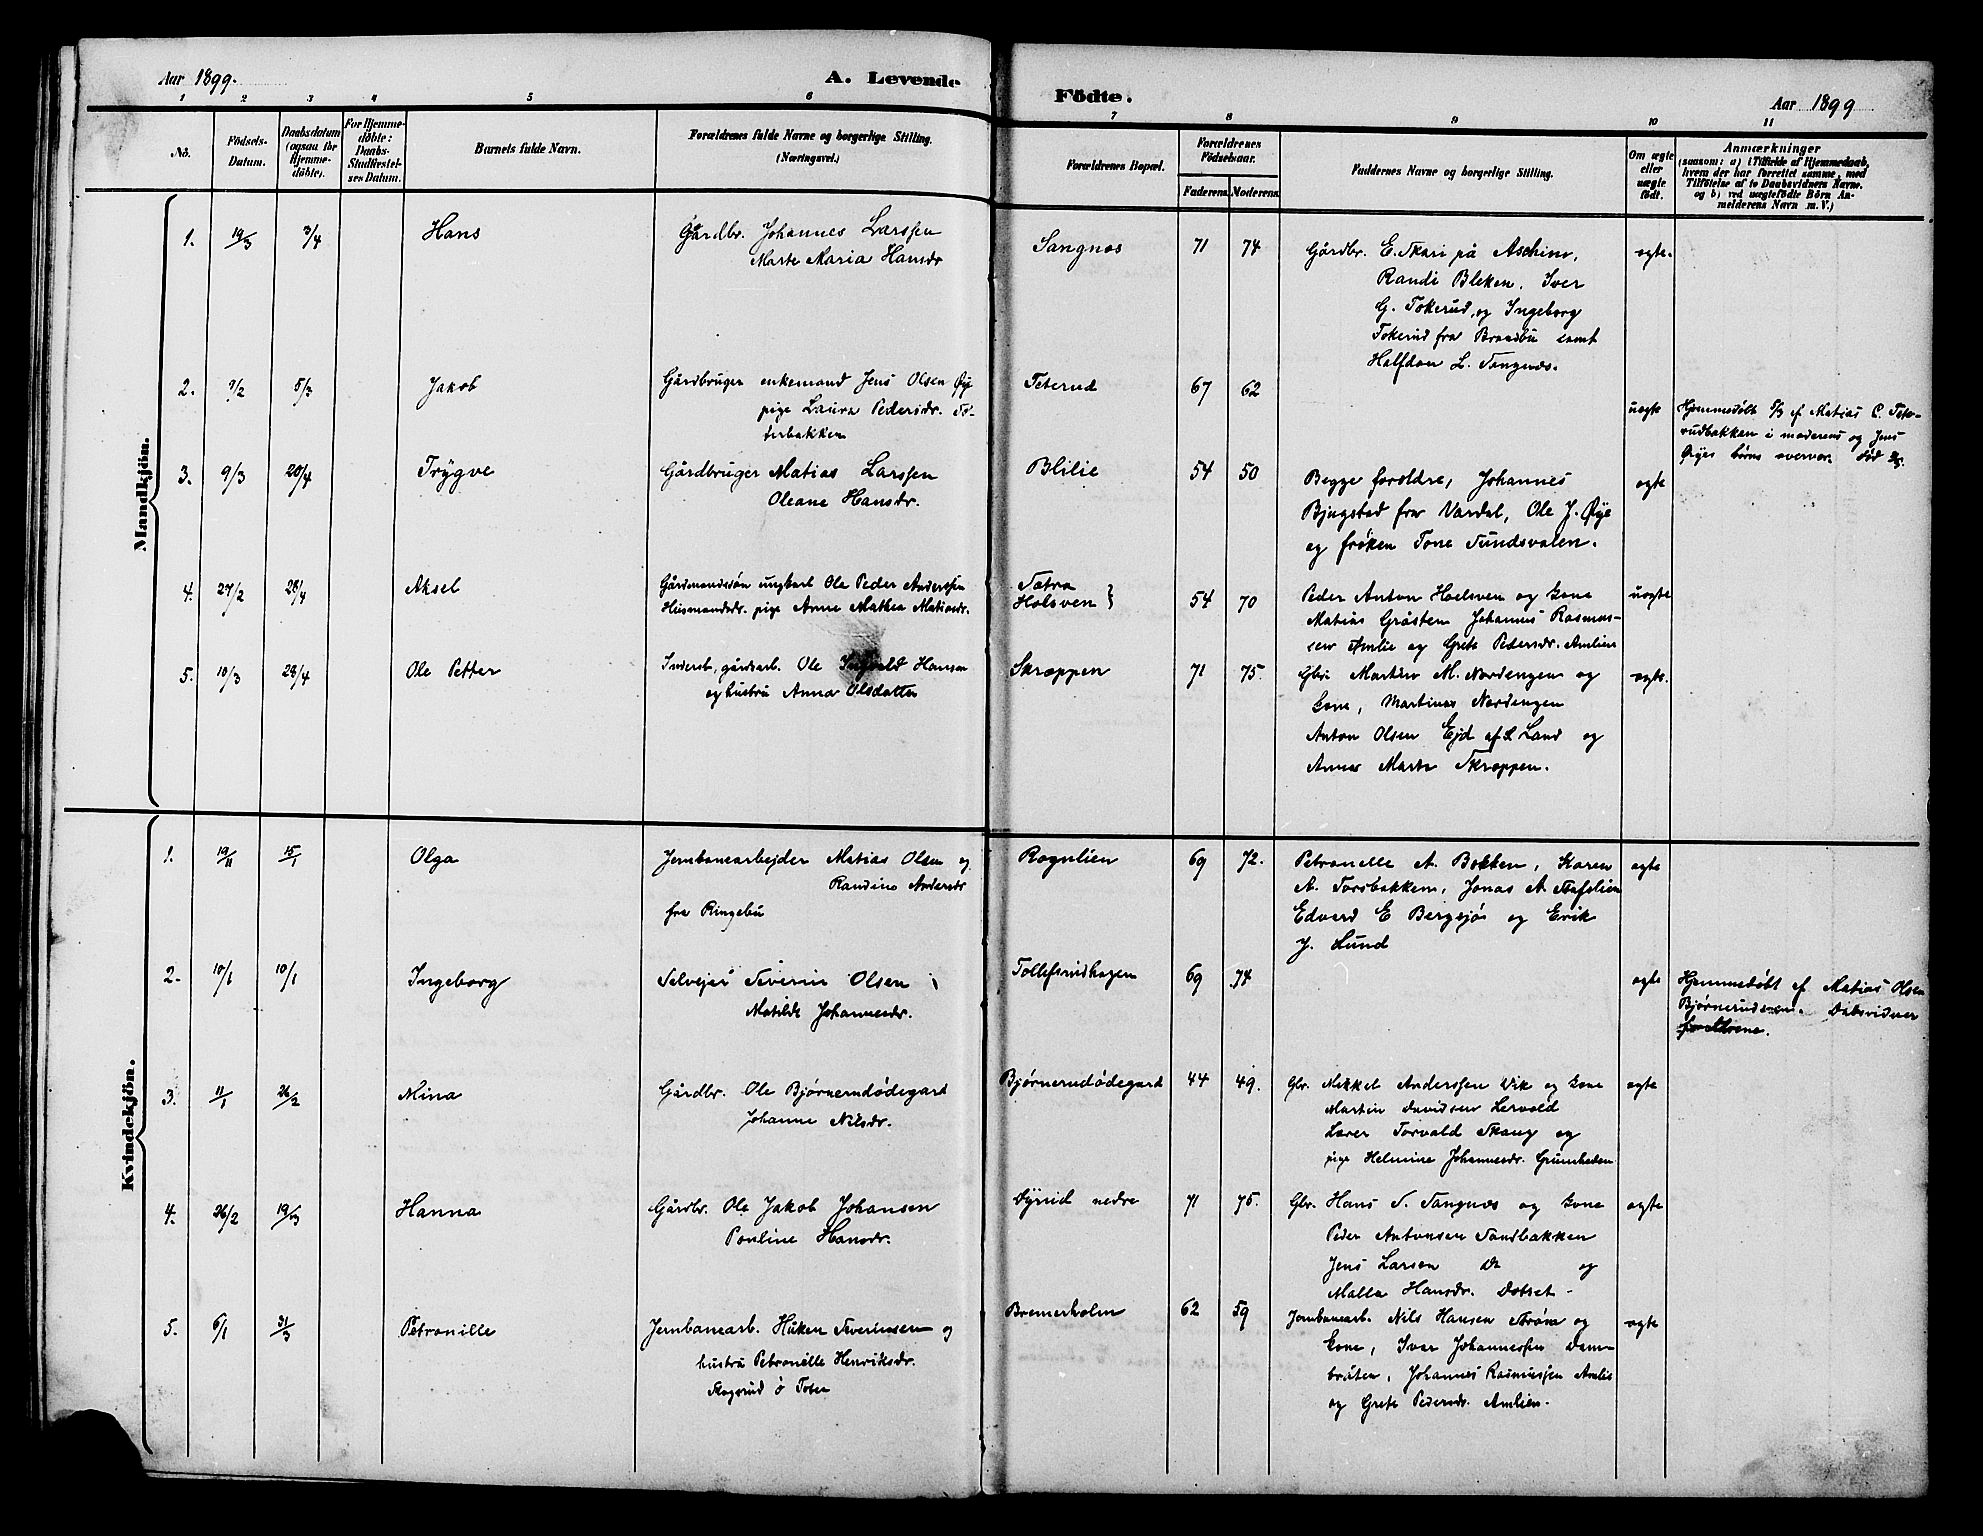 Aar 1899.
A. Levende Födte.
Aar 1899
1 2 3 4 5 6 7 8 9 10 11
No.
Födsels-
Datum.
Daabsdatum
(ogsaa for
Hjemme-
döbte).
For Hjemme-
döbte:
Daabs-
Stadfæstel-
ses Datum.
Barnets fulde Navn.
Forældrenes fulde Navne og borgerlige Stilling.
(Næringsvei.)
Forældrenes Bopæl.
Forældrenes
Födselsaar.
Faderens. Moderens.
Faddernes Navne og borgerlige Stilling.
Om ægte
eller
uægte
födt.
Anmærkninger
(saasom: a) i Tilfælde af Hjemmedaab,
hvem der har forrettet samme, med
Tilföielse af to Daabsvidners Navne.
og b) ved uægtefödte Börn An-
melderens Navn m. V.)
Mandkjön.
1. 19/3 3/4 Hans
Gårdbr. Johannes Larssen
Marte Maria Hansdr
Sangnæs 71 74
Gårdbr. E. Skari på Aschim,
Randi Bleken, Iver
G. Tokerud, og Ingeborg
Tokerud fra Brandbu samt
Halfdan L. Sangnæs.
ægte.
2. 9/2 5/3 Jakob
Gårdbruger enkemand Jens Olsen Øye
pige Laura Pedersdr. Te-
Teterud 67 62
uægte
Hjemmedøbt af Matias C. Tete-
rudbakken i moderens og Jens
Øyes børns overvær. død
3. 9/3 20/4 Trÿgve
Gårdbruger Matias Larssen
Oleane Hansdr.
Blilie 54 50
Begge forældre, Johannes
Bjugstad fra Vardal, Ole J. Øye
og frøken Tone Sundsvalen.
ægte
4. 27/2 23/4 Aksel
Gårdmandssøn ungkarl Ole Peder Anderssen
Husmandsdr. pige Anne Mathea Matiasdr.
Sætra
Holsven } 54 70
Peder Anton Hoelsven og kone
Matias Gråsten Johannes Rasmus-
sen Amlie og Grete Pedersdr. Amlien
uægte
5. 10/3 23/4 Ole Petter
Inderst, gårdsarb. Ole Ingvald Hansen
og hustru Anna Olsdatter
Skræppen 71 75.
Gbr. Martin M. Nordengen og
kone, Martinus Nordengen
Anton Olsen Ejd af S. Land og
Anna Marte Skræppen.
ægte.
Kvindekjön.
1. 19/11 15/1 Olga
Jernbanearbejder Matias Olsen og
Randine Andersdr
fra Ringebu
Rognlien 69 72.
Petronelle A. Bakken, Karen
A. Torsbakken, Jonas A
Edvard E Bergsjø og Erik
J. Lund
ægte
2. 10/1 10/1 Ingeborg
Selvejer Severin Olsen
Matilde Johannesdr.
Tollefsrudhagen 69 74
ægte
Hjemmedøbt af Matias Olsen
Bjørneruds Dåbsvidner
forældrene.
3. 11/1 26/2 Mina
Gårdbr. Ole Bjørnerudødegard
Johanne Nilsdr.
Bjørnerudødegard 44 49.
Gbr. Mikkel Anderssen Vik og kone
Martin Davidsen Lervold
Lærer Torvald Skaug og
pige Helmine Johannesdr. Grumheden
ægte
4. 26/2 19/3 Hanna
Gårdbr. Ole Jakob Johansen
Pauline Hansdr.
Dÿrud nedre 71 75.
Gbr. Hans S. Sangnæs og kone
Peder Antonsen Sandbakken
Jens Larsen Do og
Malla Hansdr. Dotset -
ægte
5. 6/1 31/3 Petronille
Jernbanearb. Håken Severinsen og
hustru Petronelle Henriksdr.
Skogsrud ø Toten
Bremerholm 62 59
Jernbanearb. Nils Hansen Strøm og
kone, Iver Johannessen Dam-
bråten, Johannes Rasmussen Amlie
og Grete Pedersdr. Amlien.
ægte